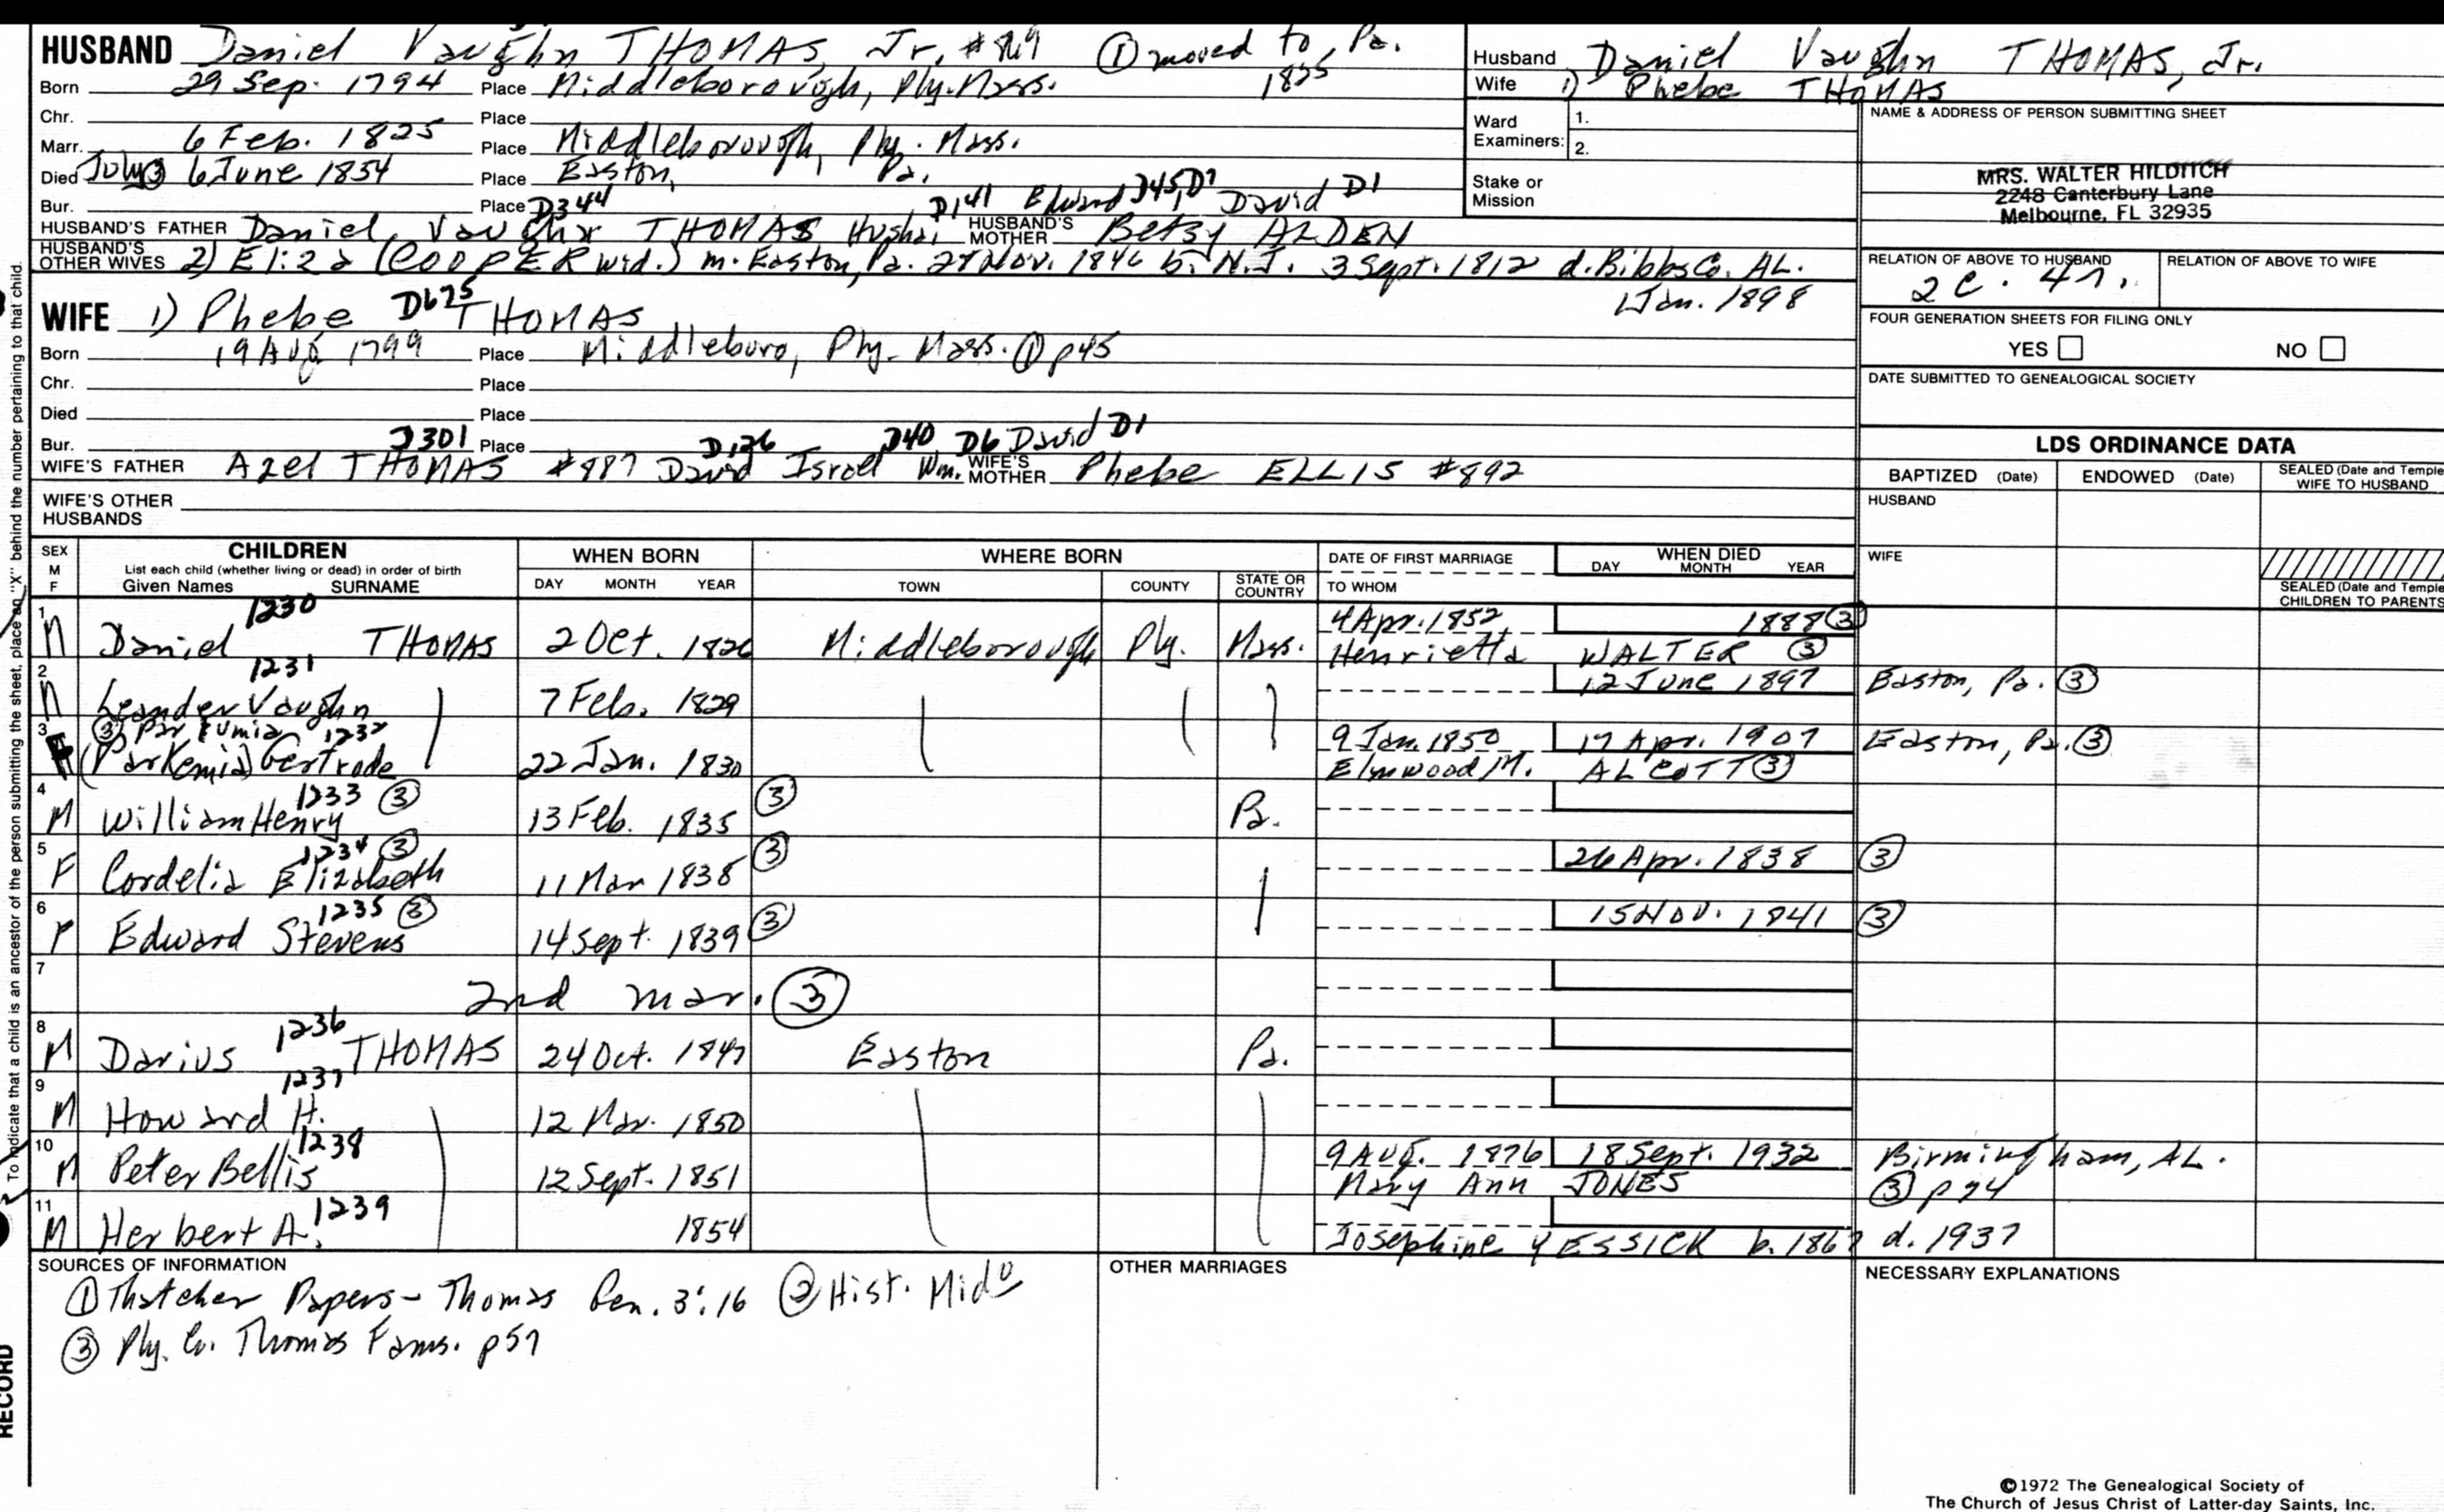 HUSBAND Daniel Vaughn THOMAS, Jr. ① moved to Pa. 1825
Born 29 Sep. 1794 Place Middleborough, Ply. Mass.
Chr. Place
Marr. 6 Feb. 1825 Place Middleborough, Ply. Mass.
Died July③ 6 June 1854 Place Easton, Pa.
Bur. Place D344 D141 Edward D45, D7 David D1
HUSBAND'S FATHER Daniel Vaughn THOMAS Hushai HUSBAND'S MOTHER Betsy ALDEN
HUSBAND'S OTHER WIVES 2) Eliza (COOPER wid.) m. Easton, Pa. 27 Nov. 1846 b. N.J. 3 Sept. 1812 d. Bibbs Co. AL.
1 Jan. 1898
WIFE 1) Phebe D675 THOMAS
Born 19 Aug 1799 Place Middleboro, Ply. Mass. ① p45
Chr. Place
Died Place
Bur. D301 Place D136 D40 D6 David D1
WIFE'S FATHER Azel THOMAS #887 David Israel Wm. WIFE'S MOTHER Phebe ELLIS #892
WIFE'S OTHER HUSBANDS
Husband Daniel Vaughn THOMAS, Jr.
Wife 1) Phebe THOMAS
Ward Examiners: 1.
2.
Stake or Mission
NAME & ADDRESS OF PERSON SUBMITTING SHEET
MRS. WALTER HILDITCH
2248 Canterbury Lane
Melbourne, FL 32935
RELATION OF ABOVE TO HUSBAND RELATION OF ABOVE TO WIFE
2c. 4r.
FOUR GENERATION SHEETS FOR FILING ONLY
YES NO
DATE SUBMITTED TO GENEALOGICAL SOCIETY
LDS ORDINANCE DATA
BAPTIZED (Date) ENDOWED (Date) SEALED (Date and Temple) WIFE TO HUSBAND
HUSBAND
WIFE
SEALED (Date and Temple) CHILDREN TO PARENTS
SEX M F CHILDREN List each child (whether living or dead) in order of birth Given Names SURNAME WHEN BORN DAY MONTH YEAR WHERE BORN TOWN COUNTY STATE OR COUNTRY DATE OF FIRST MARRIAGE TO WHOM WHEN DIED DAY MONTH YEAR
1 M Daniel 1230 THOMAS 2 Oct. 1826 Middleborough Ply. Mass. 4 Apr. 1852 1888 ③
Henrietta WALTER ③
2 M Leander Vaughn 1231 7 Feb. 1829 12 June 1897 Easton, Pa. ③
3 F ③ Parfumia 1232 (Parkemia) Gertrude 22 Jan. 1830 9 Jan. 1850 17 Apr. 1907 Easton, Pa. ③
Elmwood M. ALCOTT ③
4 M William Henry 1233 ③ 13 Feb. 1835 ③ Pa.
5 F Cordelia Elizabeth 1234 ③ 11 Mar 1838 ③ 26 Apr. 1838 ③
6 Edward Stevens 1235 ③ 14 Sept. 1839 ③ 15 Nov. 1841 ③
7 2nd mar. ③
8 M Darius 1236 THOMAS 24 Oct. 1847 Easton Pa.
9 M Howard H. 1237 12 Mar. 1850
10 M Peter Bellis 1238 12 Sept. 1851 9 Aug. 1876 18 Sept. 1932 Birmingham, AL.
Mary Ann JONES ③ p74
11 M Herbert A. 1239 1854
Josephine YESSICK b. 1867 d. 1937
SOURCES OF INFORMATION
① Thatcher Papers - Thomas Gen. 3:16 ② Hist. Mid°
③ Ply. Co. Thomas Fams. p57
OTHER MARRIAGES
NECESSARY EXPLANATIONS
To indicate that a child is an ancestor of the person submitting the sheet, place an "X" behind the number pertaining to that child.
RECORD
©1972 The Genealogical Society of
The Church of Jesus Christ of Latter-day Saints, Inc.